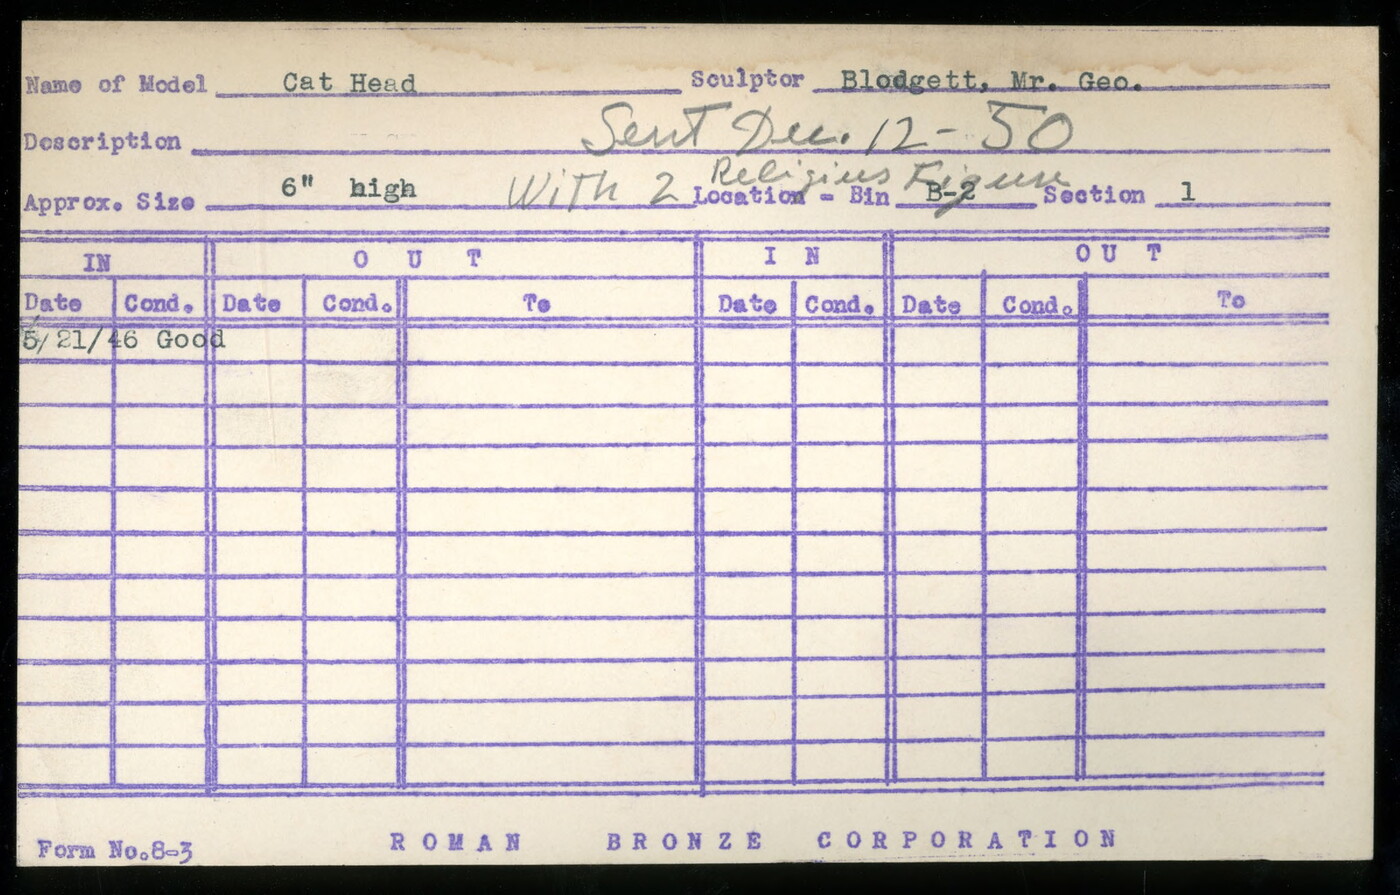 Name of Model Cat Head Sculptor Blodgett, Mr. Geo.
Sent Dec. 12-50
Description
With 2 Religius Figure
Approx. Size 6" high Location - Bin B-2 Section 1
IN OUT IN OUT
Date Cond. Date Cond. To Date Cond. Date Cond. To
5/21/46 Good
Form No.8-3 ROMAN BRONZE CORPORATION